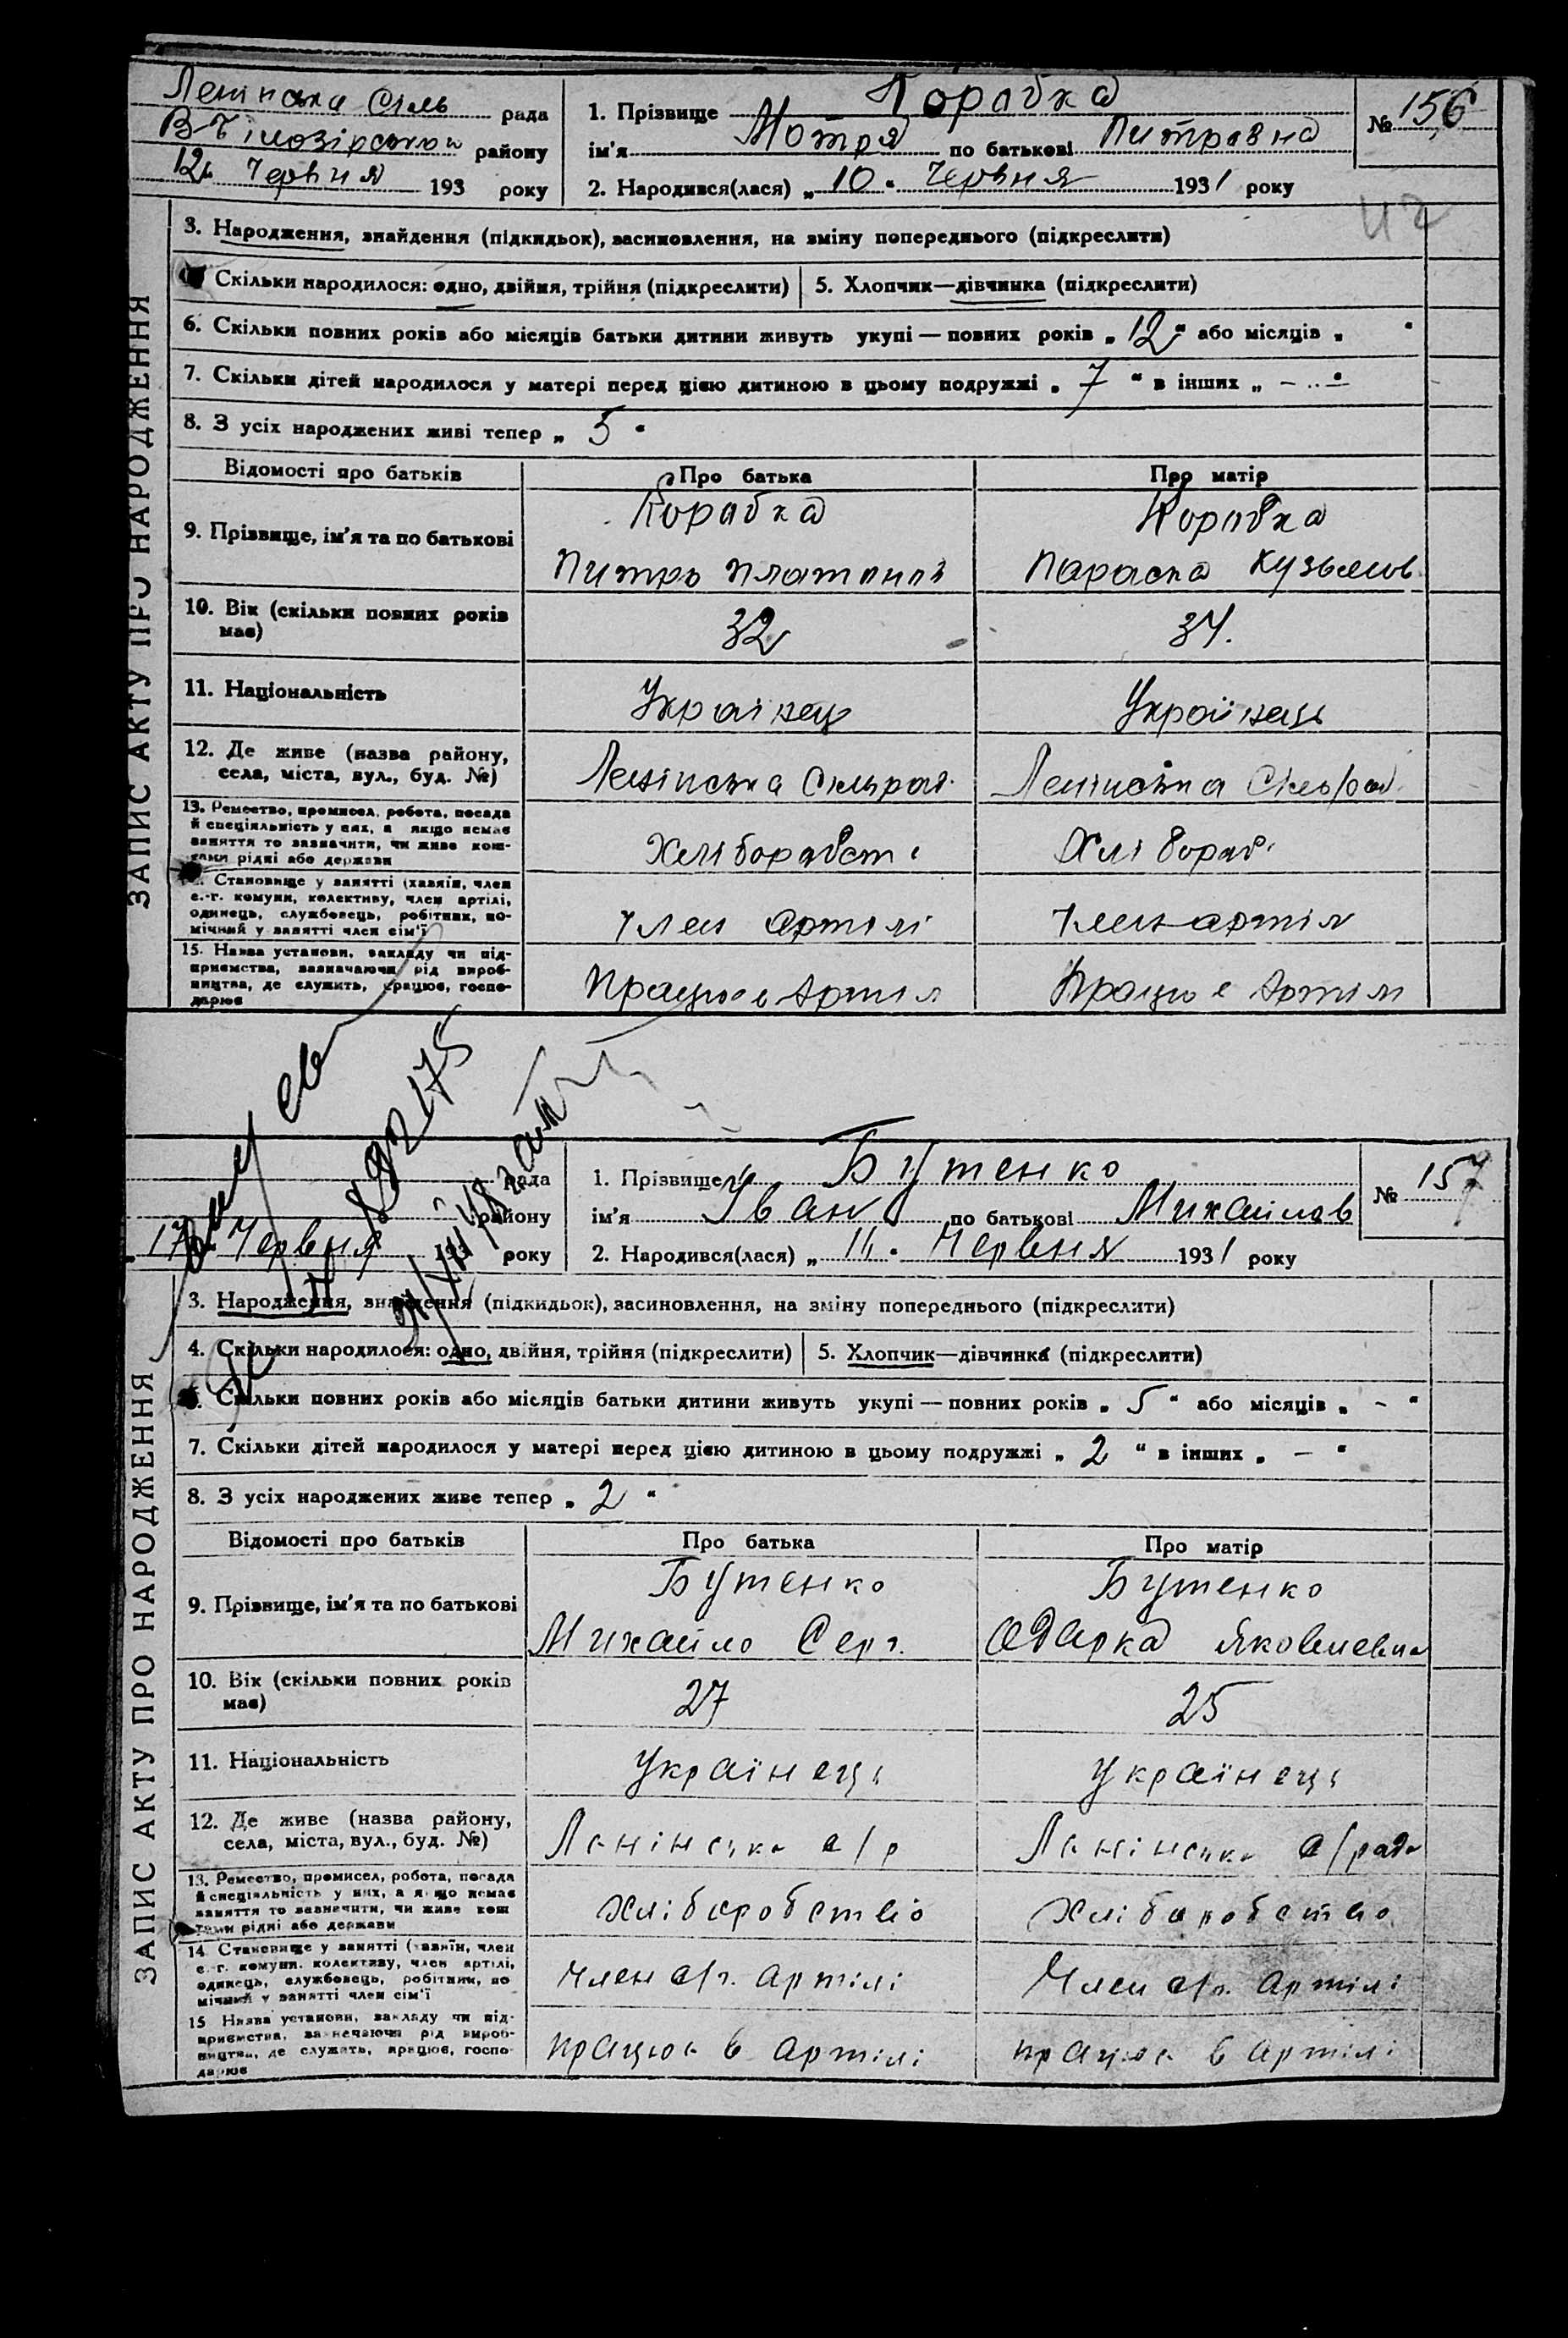 Ленінська Сіль рада
району
12 Червня 193 року
1. Прізвище Корабка
ім'я Мотря по батькові Питравна
2. Народився(лася) „ 10 “ Червня 1931 року
№ 156
42
ЗАПИС АКТУ ПРО НАРОДЖЕННЯ
3. Народження, знайдення (підкидьок), засиновлення, на зміну попереднього (підкреслити)
Скільки народилося: одно, двійня, трійня (підкреслити) 5. Хлопчик—дівчинка (підкреслити)
6. Скільки повних років або місяців батьки дитини живуть укупі — повних років „ 12 “ або місяців „ “
7. Скільки дітей народилося у матері перед цією дитиною в цьому подружжі „ 7 “ в інших „ — “
8. З усіх народжених живі тепер „ 5 “
Відомості про батьків Про батька Про матір
9. Прізвище, ім'я та по батькові
Корабка Корабка
Питро Платонов Параска Кузьмов
10. Вік (скільки повних років має) 32 34.
11. Національність Украінец Українець
12. Де живе (назва району,
села, міста, вул., буд. №)
Ленінська Сільрад. Ленінська Сільрад.
13. Ремество, промисел, робота, посада
й спеціяльність у них, а якщо немає
заняття то зазначити, чи живе кош-
тами рідні або держави
Хліборабст Хлібораб
Становище у занятті (хазяїн, член
с.-г. комуни, колективу, член артілі,
одинець, службовець, робітник, по-
мічний у занятті член сім'ї
Член Артілі Член артіл
15. Назва установи, закладу чи під-
приємства, зазначаючи рід вироб-
ництва, де служить, працює, госпо-
дарює
Працює в Артіл Працює Артіл
892175
рада
району
17 Червня 193 року
1. Прізвище Бутенко
ім'я Іван по батькові Михайлов
2. Народився(лася) „ 11 “ Червня 1931 року
№ 157
ЗАПИС АКТУ ПРО НАРОДЖЕННЯ
3. Народження, знайдення (підкидьок), засиновлення, на зміну попереднього (підкреслити)
4. Скільки народилося: одно, двійня, трійня (підкреслити) 5. Хлопчик—дівчинка (підкреслити)
Скільки повних років або місяців батьки дитини живуть укупі — повних років „ 5 “ або місяців „ - “
7. Скільки дітей народилося у матері перед цією дитиною в цьому подружжі „ 2 “ в інших „ — “
8. З усіх народжених живе тепер „ 2 “
Відомості про батьків Про батька Про матір
9. Прізвище, ім'я та по батькові
Бутенко Бутенко
Михайло Серг. Одарка Яковлевна
10. Вік (скільки повних років має) 27 25
11. Національність Українець Українець
12. Де живе (назва району,
села, міста, вул., буд. №)
Ленінська с/р Ленінська с/рада
13. Ремество, промисел, робота, посада
й спеціяльність у них, а якщо немає
заняття то зазначити, чи живе кош
тами рідні або держави
Хліборобство Хліборобство
14. Становище у занятті (хазяїн, член
с.-г. комуни, колективу, член артілі,
одинець, службовець, робітник, по
мічний у занятті член сім'ї
Член с/г. артілі Член с/г. артілі
15 Назва установи, закладу чи під-
приємства, зазначаючи рід вироб-
ництва, де служить, працює, госпо-
дарює
працює в артілі працює в артілі